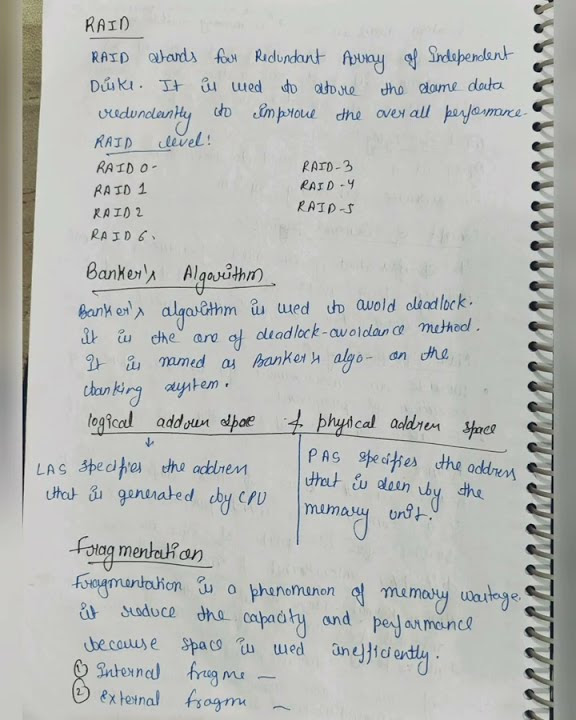 RAID
RAID stands for Redundant Array of Independent
Disks. It is used to store the same data
redundantly to improve the overall performance.
RAID level!
RAID 0- RAID-3
RAID 1 RAID-4
RAID 2 RAID-5
RAID 6.
Banker's Algorithm
Banker's algorithm is used to avoid deadlock.
It is the one of deadlock-avoidance method.
It is named as Banker's algo- on the
banking system.
logical address space & physical address space
LAS specifies the address
that is generated by CPU
PAS specifies the address
that is seen by the
memory unit.
Fragmentation
Fragmentation is a phenomenon of memory wastage.
it reduce the capacity and performance
because space is used inefficiently.
① Internal fragme —
② External fragm —